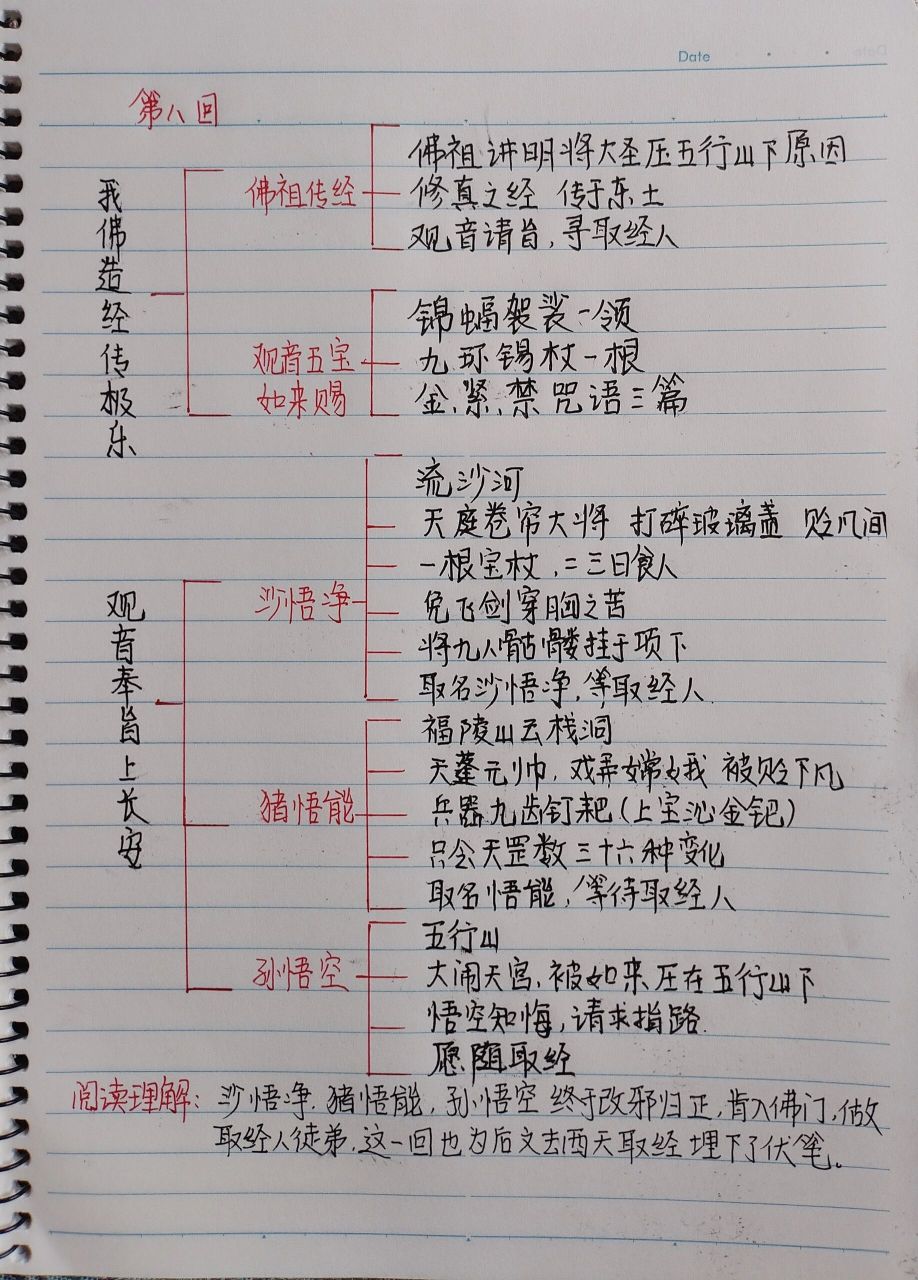 Date
第八回
我佛造经传极乐
佛祖传经
佛祖讲明将大圣压五行山下原因
修真之经 传于东土
观音请旨,寻取经人
观音五宝
如来赐
锦蝠袈裟一领
九环锡杖一根
金、紧、禁咒语三篇
观音奉旨上长安
沙悟净
流沙河
天庭卷帘大将 打碎玻璃盏 贬凡间
一根宝杖,二三日食人
免飞剑穿胸之苦
将九人骷髅挂于项下
取名沙悟净,等取经人
猪悟能
福陵山云栈洞
天蓬元帅,戏弄嫦娥 被贬下凡
兵器九齿钉耙(上宝沁金钯)
只会天罡数三十六种变化
取名悟能,等待取经人
孙悟空
五行山
大闹天宫,被如来压在五行山下
悟空知悔,请求指路
愿随取经
阅读理解: 沙悟净、猪悟能,孙悟空终于改邪归正,肯入佛门,做
取经人徒弟,这一回也为后文去西天取经埋下了伏笔。